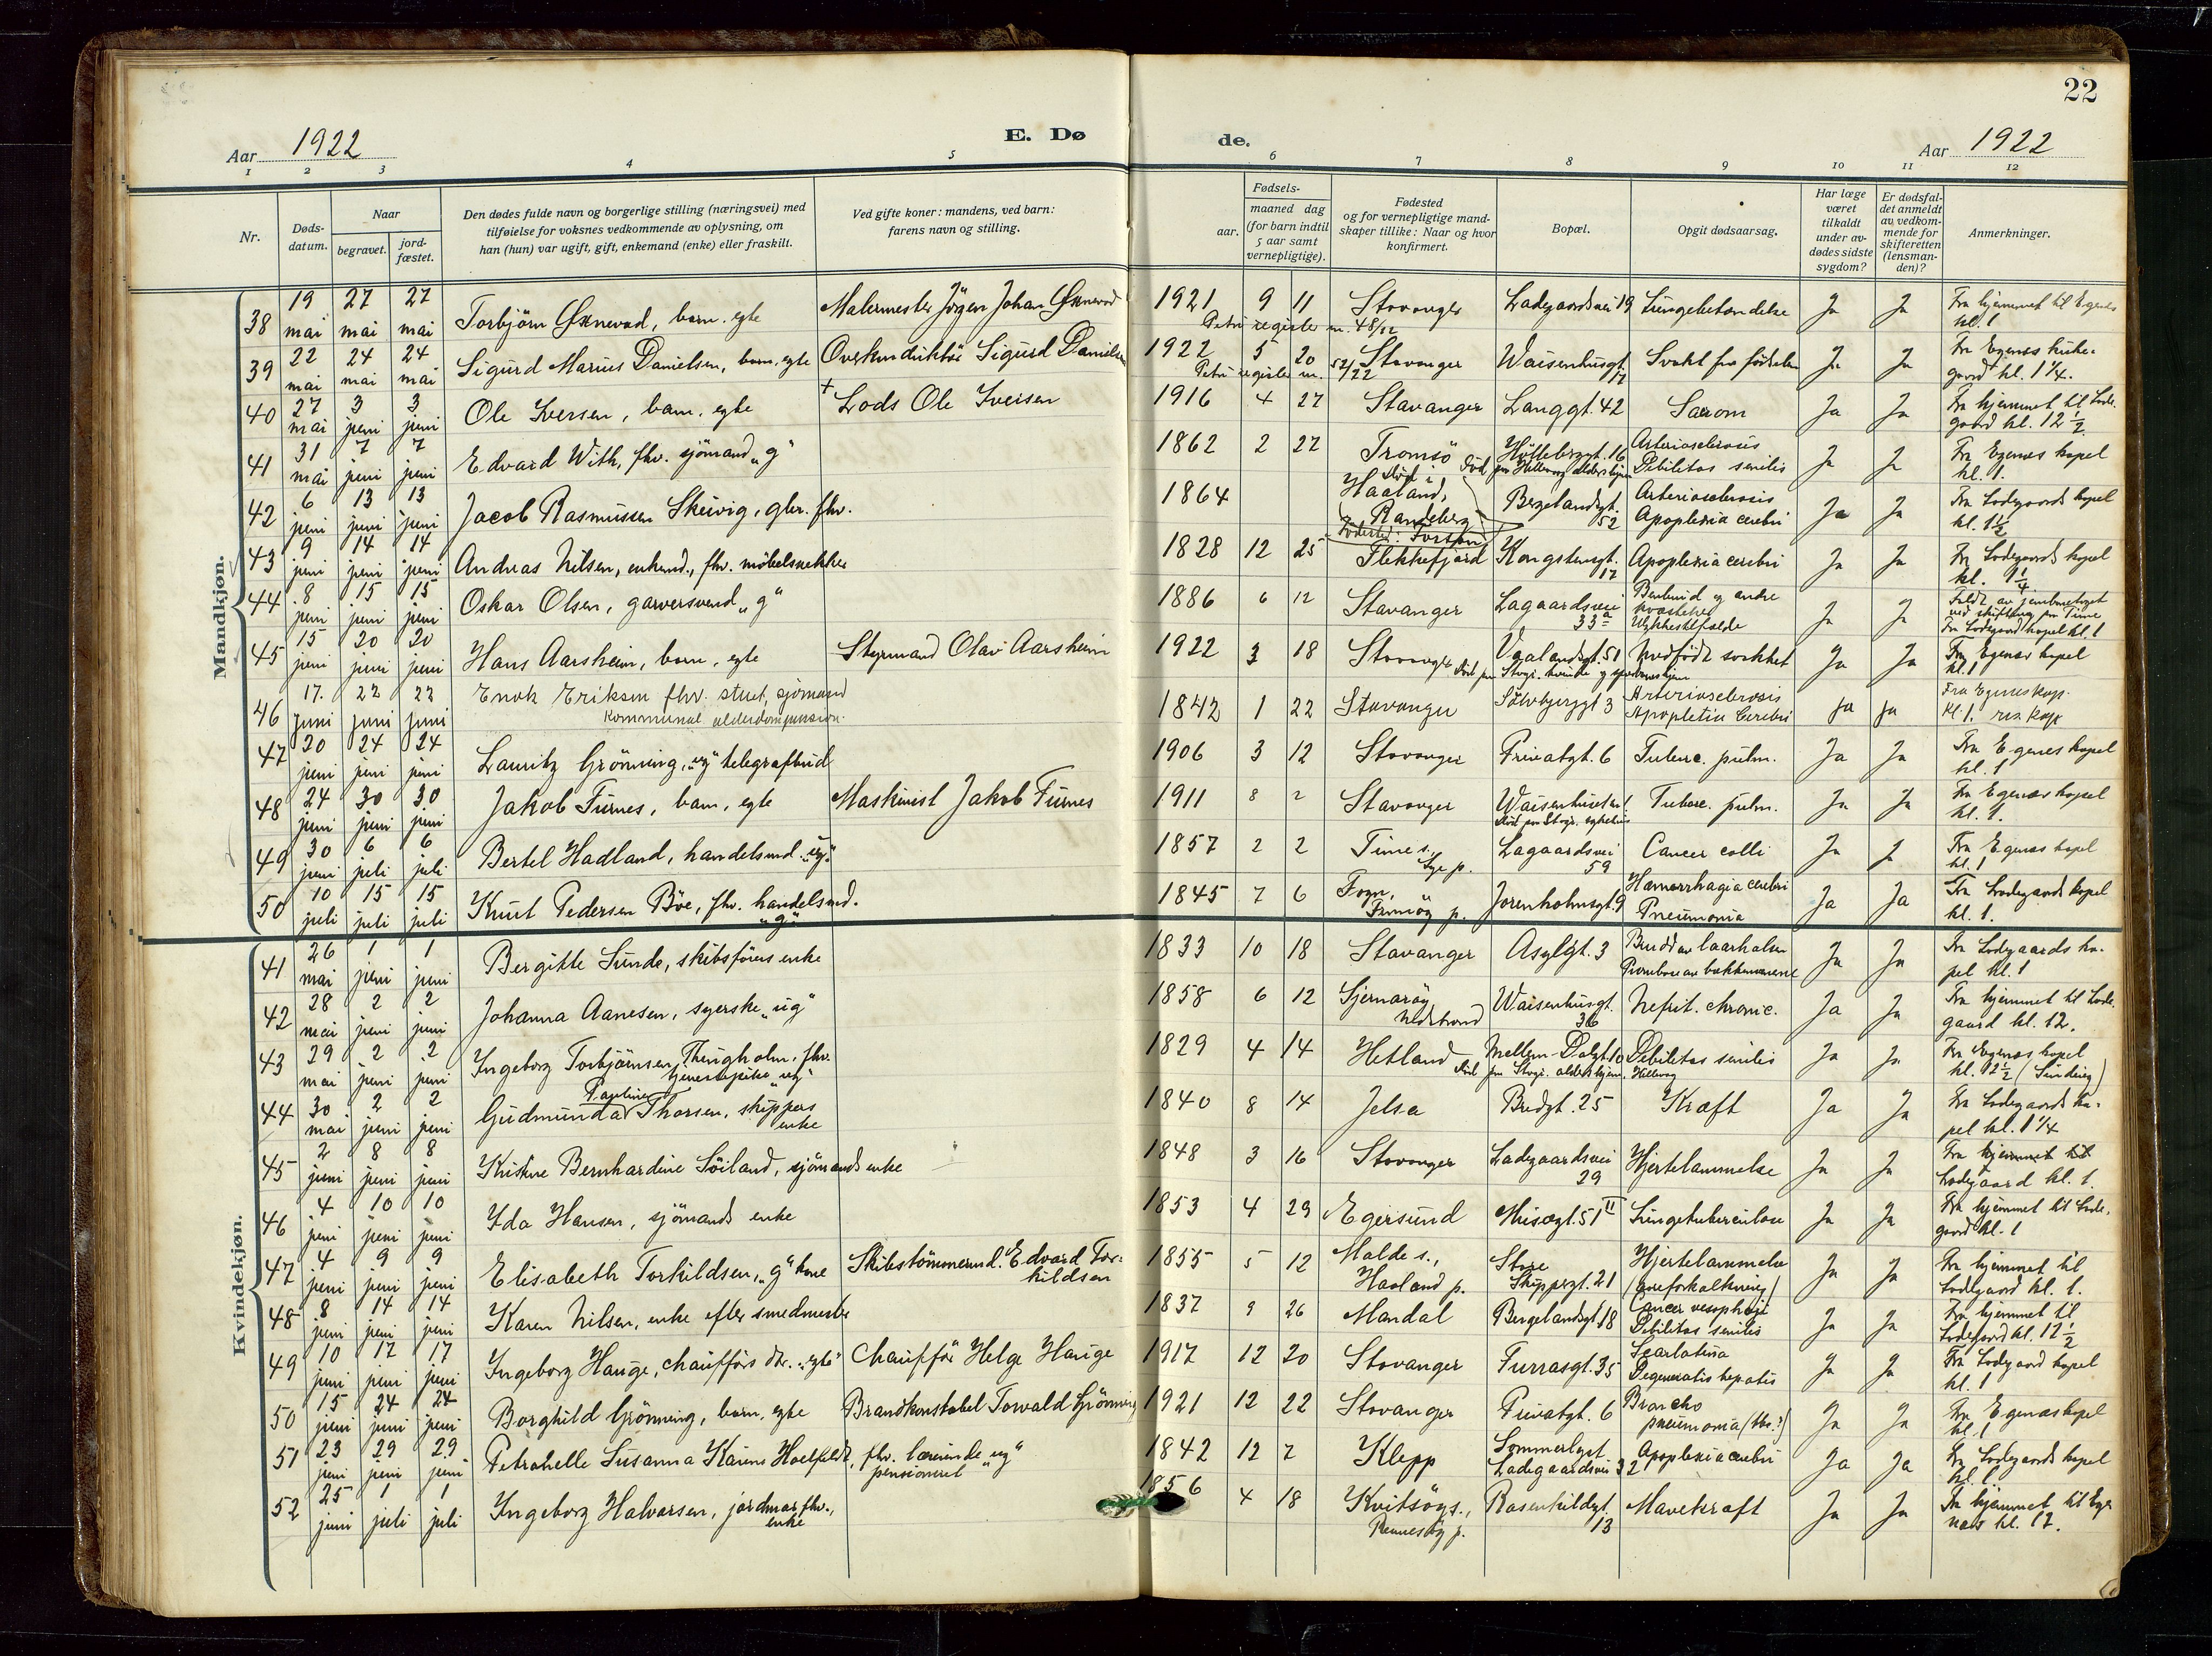 22
Aar 1922
E. Dø
de.
Aar 1922
1 2 3 4 5 6 7 8 9 10 11 12
Nr.
Døds-
datum.
Naar
begravet.
jord-
fæstet.
Den dødes fulde navn og borgerlige stilling (næringsvei) med
tilføielse for voksnes vedkommende av oplysning, om
han (hun) var ugift, gift, enkemand (enke) eller fraskilt.
Ved gifte koner: mandens, ved barn:
farens navn og stilling.
Fødsels-
aar.
maaned dag
(for barn indtil
5 aar samt
vernepligtige).
Fødested
og for vernepligtige mand-
skaper tillike: Naar og hvor
konfirmert.
Bopæl.
Opgit dødsaarsag.
Har læge
været
tilkaldt
under av-
dødes sidste
sygdom?
Er dødsfal-
det anmeldt
av vedkom-
mende for
skifteretten
(lensman-
den)?
Anmerkninger.
Mandkjøn.
38 19 mai 27 mai 27 mai Torbjørn Øknevad, barn, egte Malermester Jörgen Johan Øknevad 1921 9 11 Stavanger Ladegaardsvei 19 Lungebetændelse Ja Ja Fra hjemmet til Egenes kl. 1
Petri register nr. 48/22
39 22 mai 24 mai 24 mai Sigurd Marius Danielsen, barn, egte Overkonduktör Sigurd Danielsen 1922 5 20 Stavanger Waisenhusgt. 17 Svakt fra födselen Ja Ja Fra Egenes kirke-
gaard kl. 1 1/4.
Petri register nr. 52/22
40 27 mai 3 juni 3 juni Ole Iversen, barn, egte + Lods Ole Iversen 1916 4 27 Stavanger Langgt. 42 Sarcom Ja Ja Fra hjemmet til Lade-
gaard kl. 12 1/2
41 31 mai 7 juni 7 juni Edvard With, fhv. sjömand "g" 1862 2 22 Tromsö Arteriosclerosis
Debilitas senilis Ja Ja Fra Egenes kapel
kl. 1.
42 6 juni 13 juni 13 juni Jacob Rasmussen Skeivig, gbr. fhv. 1864 Haaland, Randeberg Bergelandsgt. 52 Arteriosclerosis
Apoplexia cerebri Ja Ja Fra Ladegaards kapel
kl. 1 1/2
43 9 juni 14 juni 14 juni Andreas Nilsen, enkemd., fhv. möbelsnekker 1828 12 25 Flekkefjord Kongstensgt. 17 Apoplexia cerebri Ja Ja Fra Ladegaards kapel
kl. 9 1/4
44 8 juni 15 juni 15 juni Oskar Olsen, garversvend "g" 1886 6 12 Stavanger Lagaardsvei 33a Benbrud og andre
kvæstelser
Ulykkestilfælde Ja Ja Faldt av jernbanetoget
ved skiftning paa Time
Fra Ladegaard kapel kl. 1
45 15 juni 20 juni 20 juni Hans Aarsheim, barn, egte Styrmand Olav Aarsheim 1922 3 18 Stavanger Vaalandsgt. 51 Medfödt svakhet Ja Ja Fra Egenes kapel
kl. 1
46 17. juni 22 juni 22 juni Enok Eriksen fhv. stuert, sjömand
kommunal alderdomspension. 1842 1 22 Stavanger Sölvbergsgt 3 Arteriosclerosis
Apopletia Cerebri ja ja Fra Egenes kap.
kl. 1. res. kap
47 20 juni 24 juni 24 juni Lauritz Grönning, "ug" telegrafbud 1906 3 12 Stavanger Privatgt. 6 Tuberc. pulm. Ja Ja Fra Egenes kapel
kl. 1
48 24 juni 30 juni 30 juni Jakob Furnes, barn, egte Maskinist Jakob Furnes 1911 8 2 Stavanger Tuberc. pulm. Ja Ja Fra Egenes kapel
kl. 1.
49 30 juni 6 juli 6 juli Bertel Hadland, handelsmd. "ug". 1857 2 2 Time s., Lye p. Lagaardsvei 59 Cancer colli Ja Ja Fra Egenes kapel
kl. 1
50 10 juli 15 juli 15 juli Knut Pedersen Böe, fhv. handelsmd.
"g" 1845 7 6 Fogn, Finnöy p. Jorenholmsgt. 9 Hæmorrhagia cerebri
Pneumonia Ja Ja Fra Ladegaards kapel
kl. 1.
Kvindekjøn.
41 26 mai 1 juni 1 juni Bergitte Sunde, skibsförers enke 1833 10 18 Stavanger Asylgt. 3 Brudd av laarhalsen Ja Ja Fra Ladegaards ka-
pel kl. 1
42 28 mai 2 juni 2 juni Johanna Aanesen, syerske "ug" 1858 6 12 Sjernaröy Nedstrand Waisenhusgt. 36 Nefrit. chronic. Ja Ja Fra hjemmet til Lade-
gaard kl. 12.
43 29 mai 2 juni 2 juni Ingeborg Torbjörnsen Thengholm, fhv.
tjenestepike "ug" 1829 4 14 Hetland Mellem-Dalgt. 10 Debilitas senilis Ja Ja Fra Egenes kapel
kl. 12 1/2 (Sinding)
Död paa Stvgr. aldershjem, Hillevaag
44 30 mai 2 juni 2 juni Gudmunda Pauline Thorsen, skippers
enke 1840 8 14 Jelsa Bredgt. 25 Kræft Ja Ja Fra Ladegaards ka-
pel kl. 1 1/4
45 2 juni 8 juni 8 juni Kristine Bernhardine Söiland, sjömands enke 1848 3 16 Stavanger Ladegaardsvei 29 Hjertelammelse Ja Ja Fra hjemmet til
Ladegaard kl. 1.
46 4 juni 10 juni 10 juni Ida Hansen, sjömands enke 1853 4 29 Egersund Musægt. 51 II Lungetuberculose Ja Ja Fra hjemmet til Lade-
gaard kl. 1
47 4 juni 9 juni 9 juni Elisabeth Torkildsen, "g" kone Skibstömmermd. Edvard Tor-
kildsen 1855 5 12 Malde s., Haaland p. Store Skippergt. 21 Hjertelammelse
(areforkalkning) Ja Ja Fra hjemmet til
Ladegaard kl. 1.
48 8 juni 14 juni 14 juni Karen Nilsen, enke efter smedmester 1837 9 26 Mandal Bergelandsgt. 18 Cancer oesophagi
Debilitas senilis Ja Ja Fra hjemmet til
Ladegaard kl. 12 1/2
49 10 juni 17 juni 17 juni Ingeborg Hauge, chaufförs dtr. "egte" Chaufför Helge Hauge 1917 12 20 Stavanger Furrasgt. 35 Scarlatina
Degeneratis hepatis Ja Ja Fra Ladegaard kapel
kl. 1
50 15 juni 24 juni 24 juni Borghild Grönning, barn, egte Brandkonstabel Torvald Grönning 1921 12 22 Stavanger Privatgt. 6 Broncho
pneumonia (tbc.?) Ja Ja Fra Egenes kapel
kl. 1
51 23 juni 29 juni 29 juni Petrahelle Susanna Karens Hoelfeldt, fhv. lærerinde "ug"
pensioneret 1842 12 7 Klepp Sommerlyst
Ladegaardsvei 32 Apoplexia cerebri Ja Ja Fra Ladegaards kapel
kl. 1
52 25 juni 1 juli 1 juli Ingeborg Halvorsen, jordmor fhv.,
enke 1856 4 18 Kvitsöy s., Rennesöy p. Rosenkildegt. 13 Mavekræft Ja Ja Fra hjemmet til Ege-
nes kl. 12.